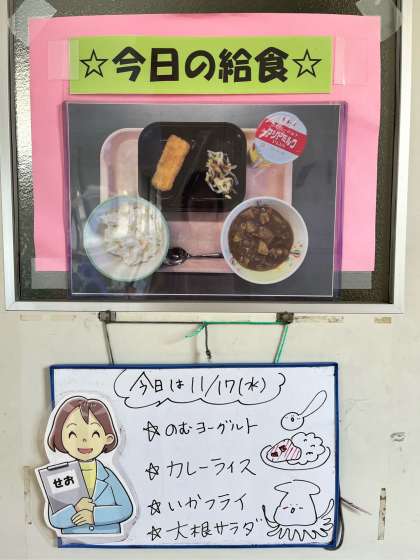 ☆今日の給食☆
今日は11/17(水)
☆のむヨーグルト
☆カレーライス
☆いかフライ
☆大根サラダ
せお